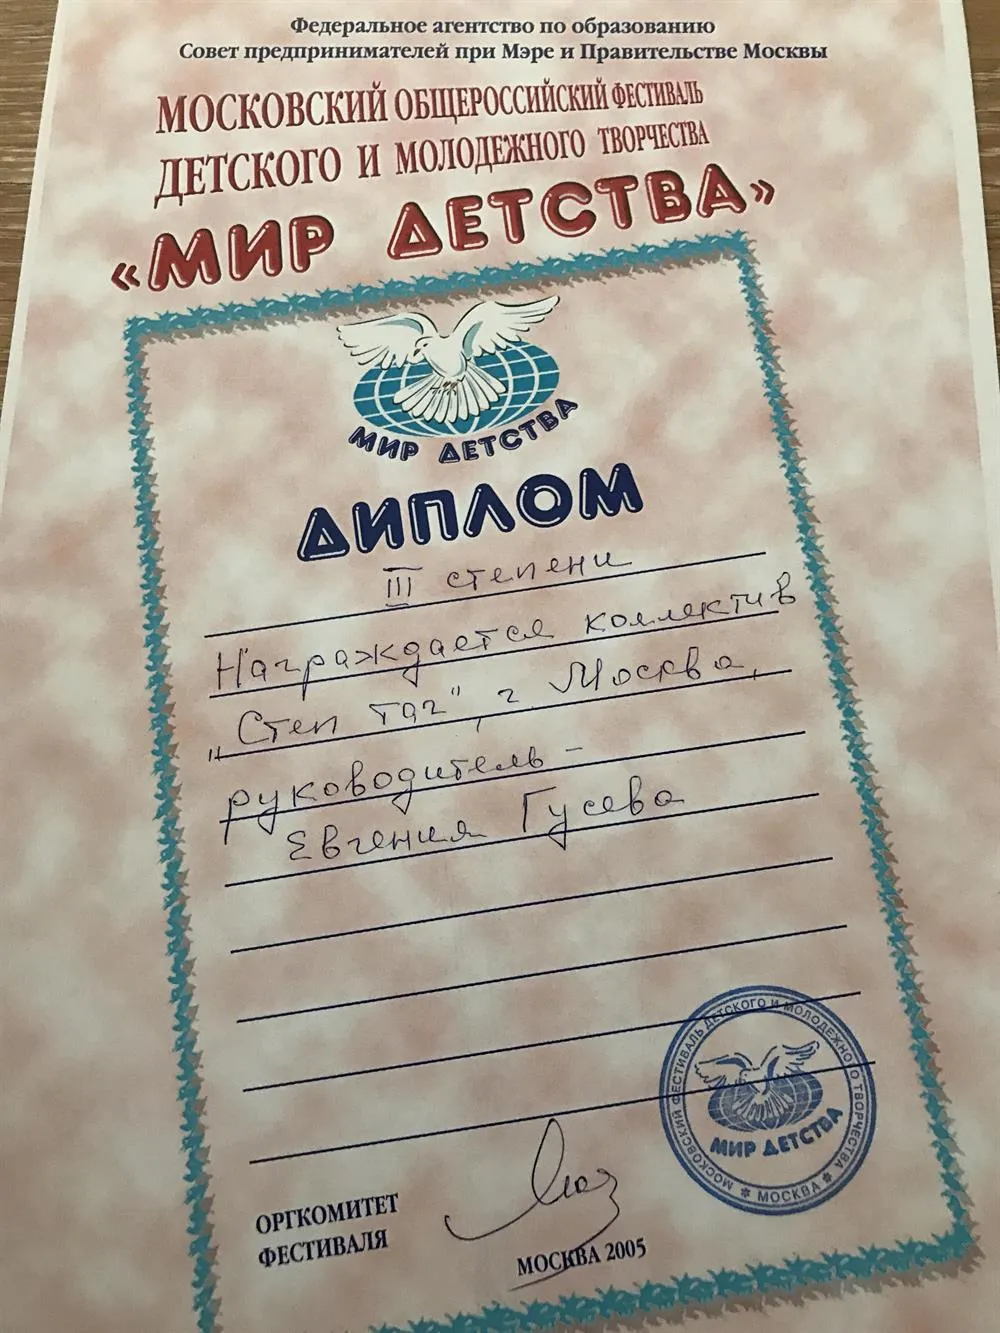 Федеральное агентство по образованию
Совет предпринимателей при Мэре и Правительстве Москвы
МОСКОВСКИЙ ОБЩЕРОССИЙСКИЙ ФЕСТИВАЛЬ
ДЕТСКОГО И МОЛОДЕЖНОГО ТВОРЧЕСТВА
«МИР ДЕТСТВА»
МИР ДЕТСТВА
ДИПЛОМ
III степени
Награждается коллектив
„Степ таг", г. Москва,
руководитель –
Евгения Гусева
МОСКОВСКИЙ ФЕСТИВАЛЬ ДЕТСКОГО И МОЛОДЕЖНОГО ТВОРЧЕСТВА
МИР ДЕТСТВА
* МОСКВА *
ОРГКОМИТЕТ
ФЕСТИВАЛЯ
МОСКВА 2005